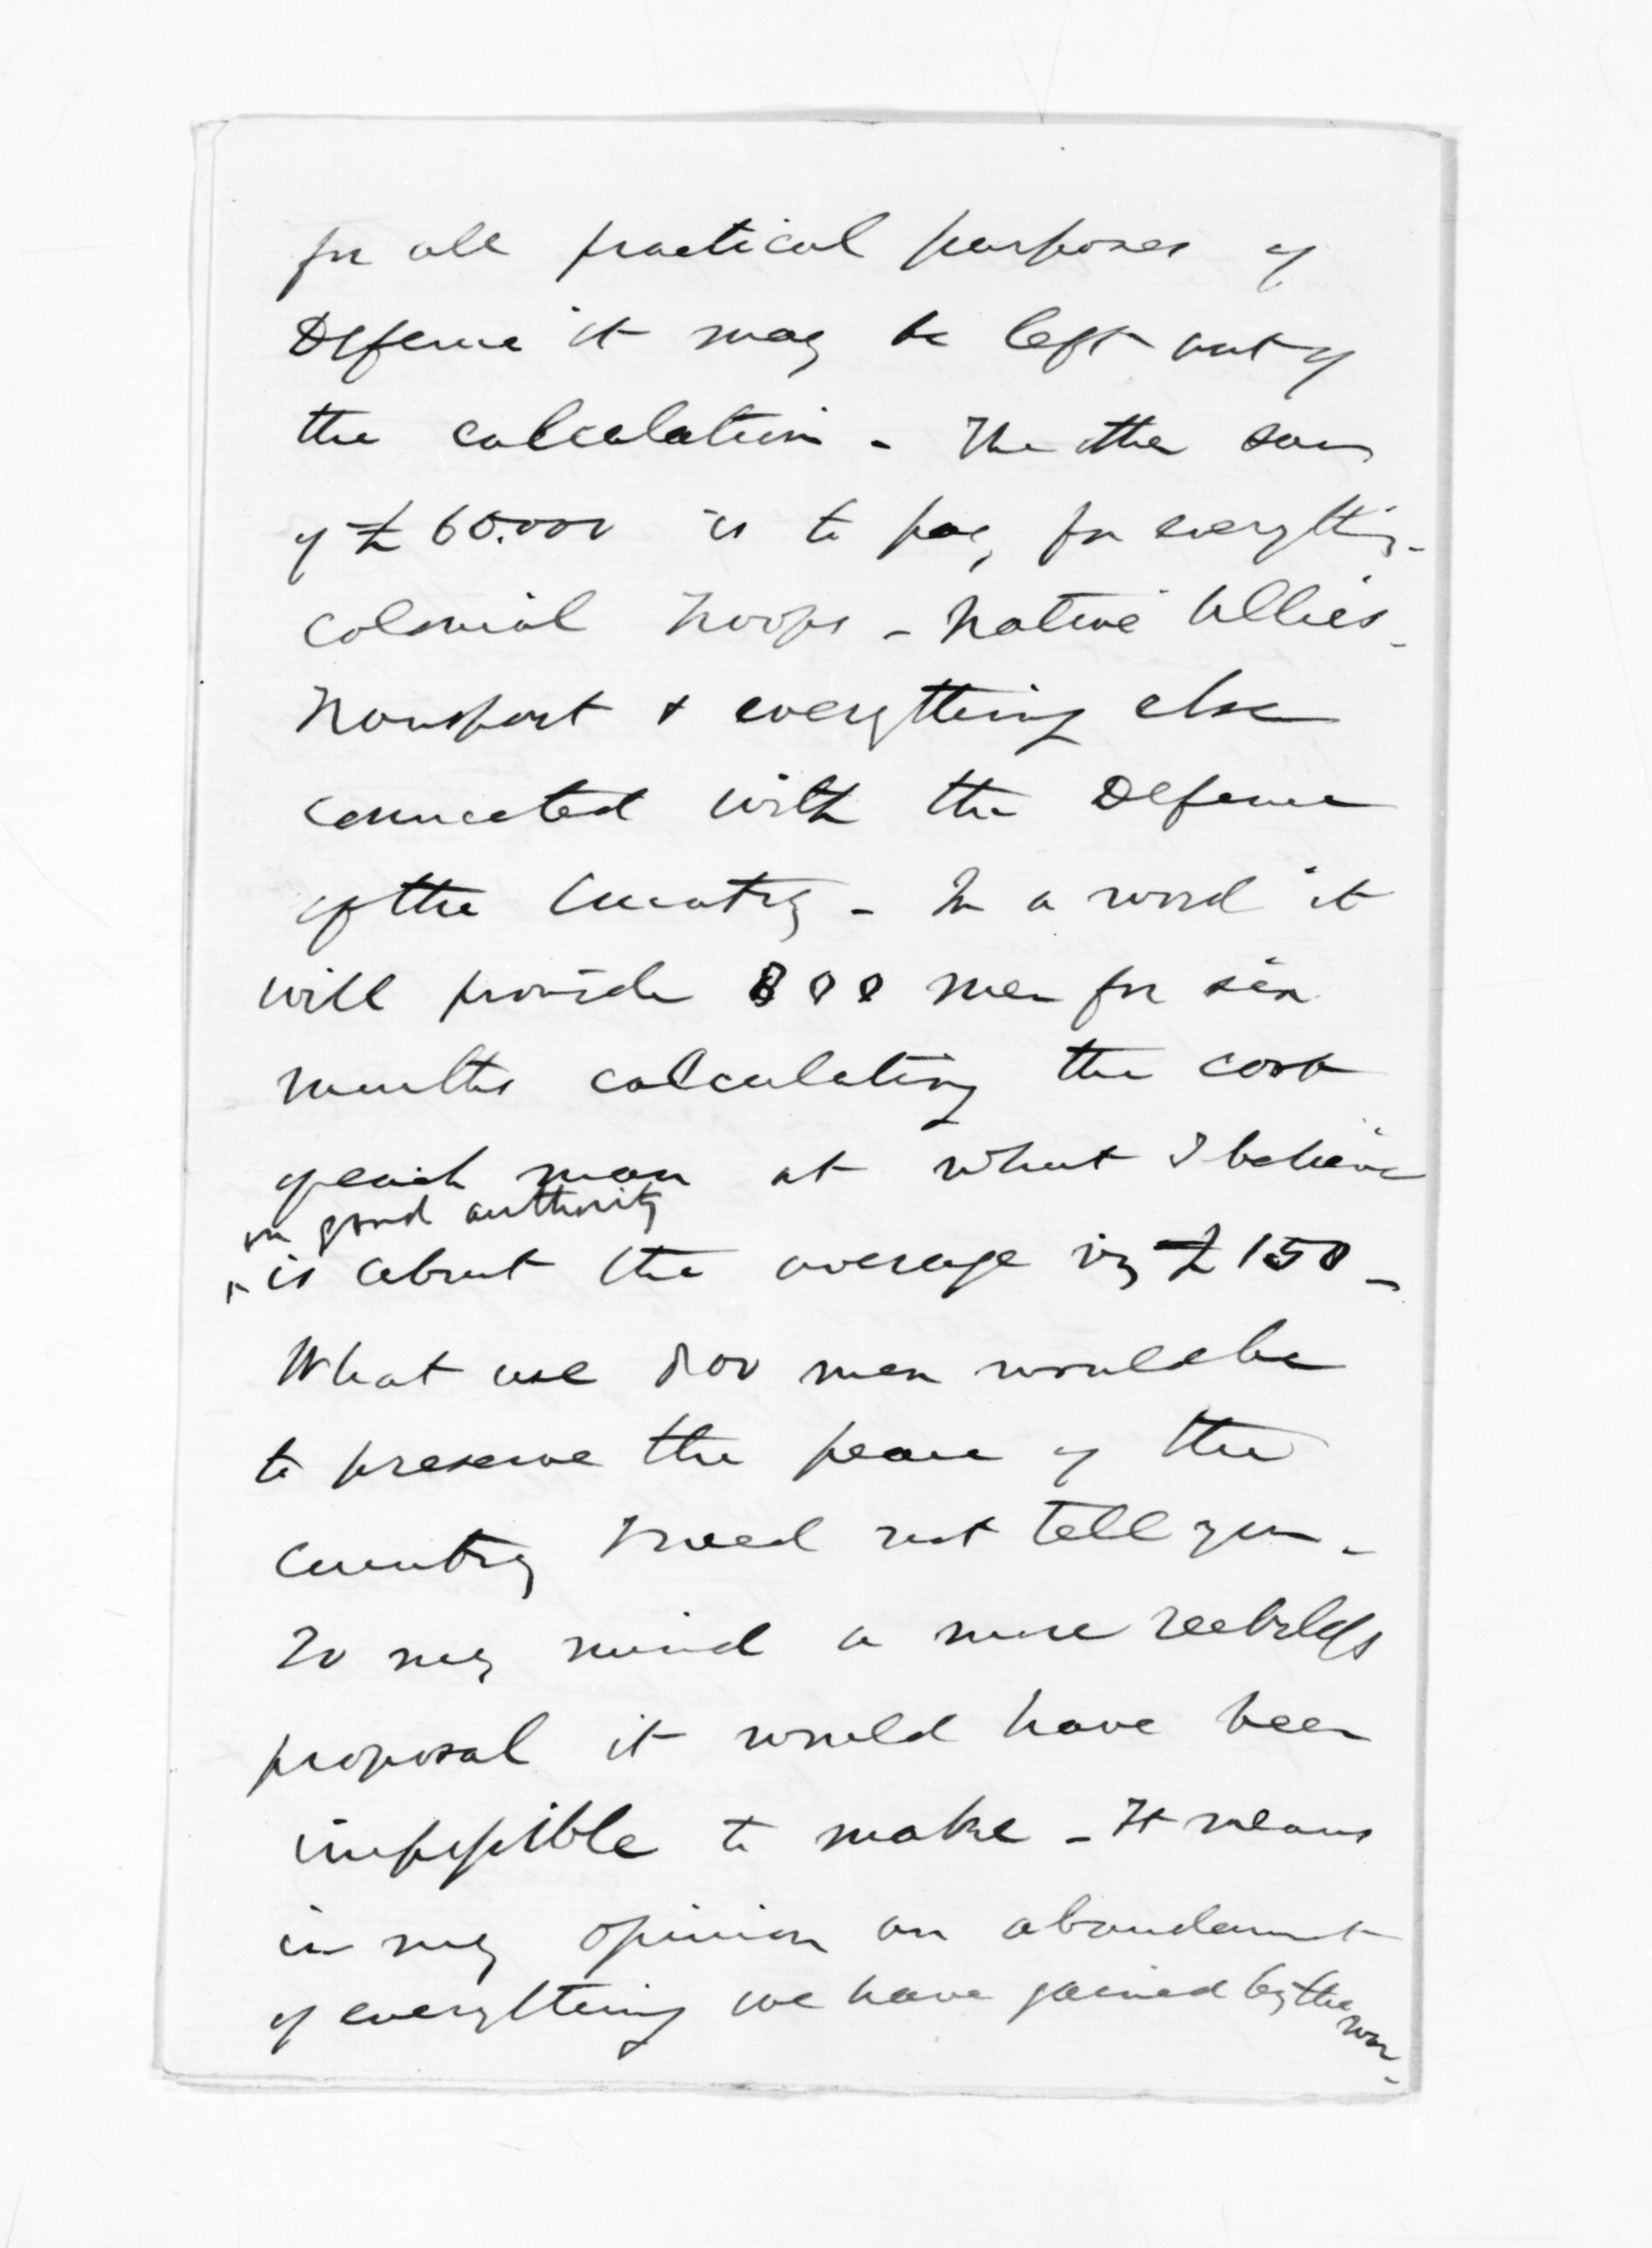 for all practical purposes of
Defence it may be left out of
the calculation - The other sum
of £60.000 is to pay for everything -
Colonial Troops - Native Allies -
Transport & everything else
connected with the Defence
of the Country - In a word it
will provide 800 men for six
months calculating the cost
of each man at what I believe
on good authority
^ is about the average viz £150 -
What use 800 men would be
to preserve the peace of the
Country I need not tell you -
To my mind a more reckless
proposal it would have been
impossible to make - It means
in my opinion an abandonment
of everything we have gained by the war -